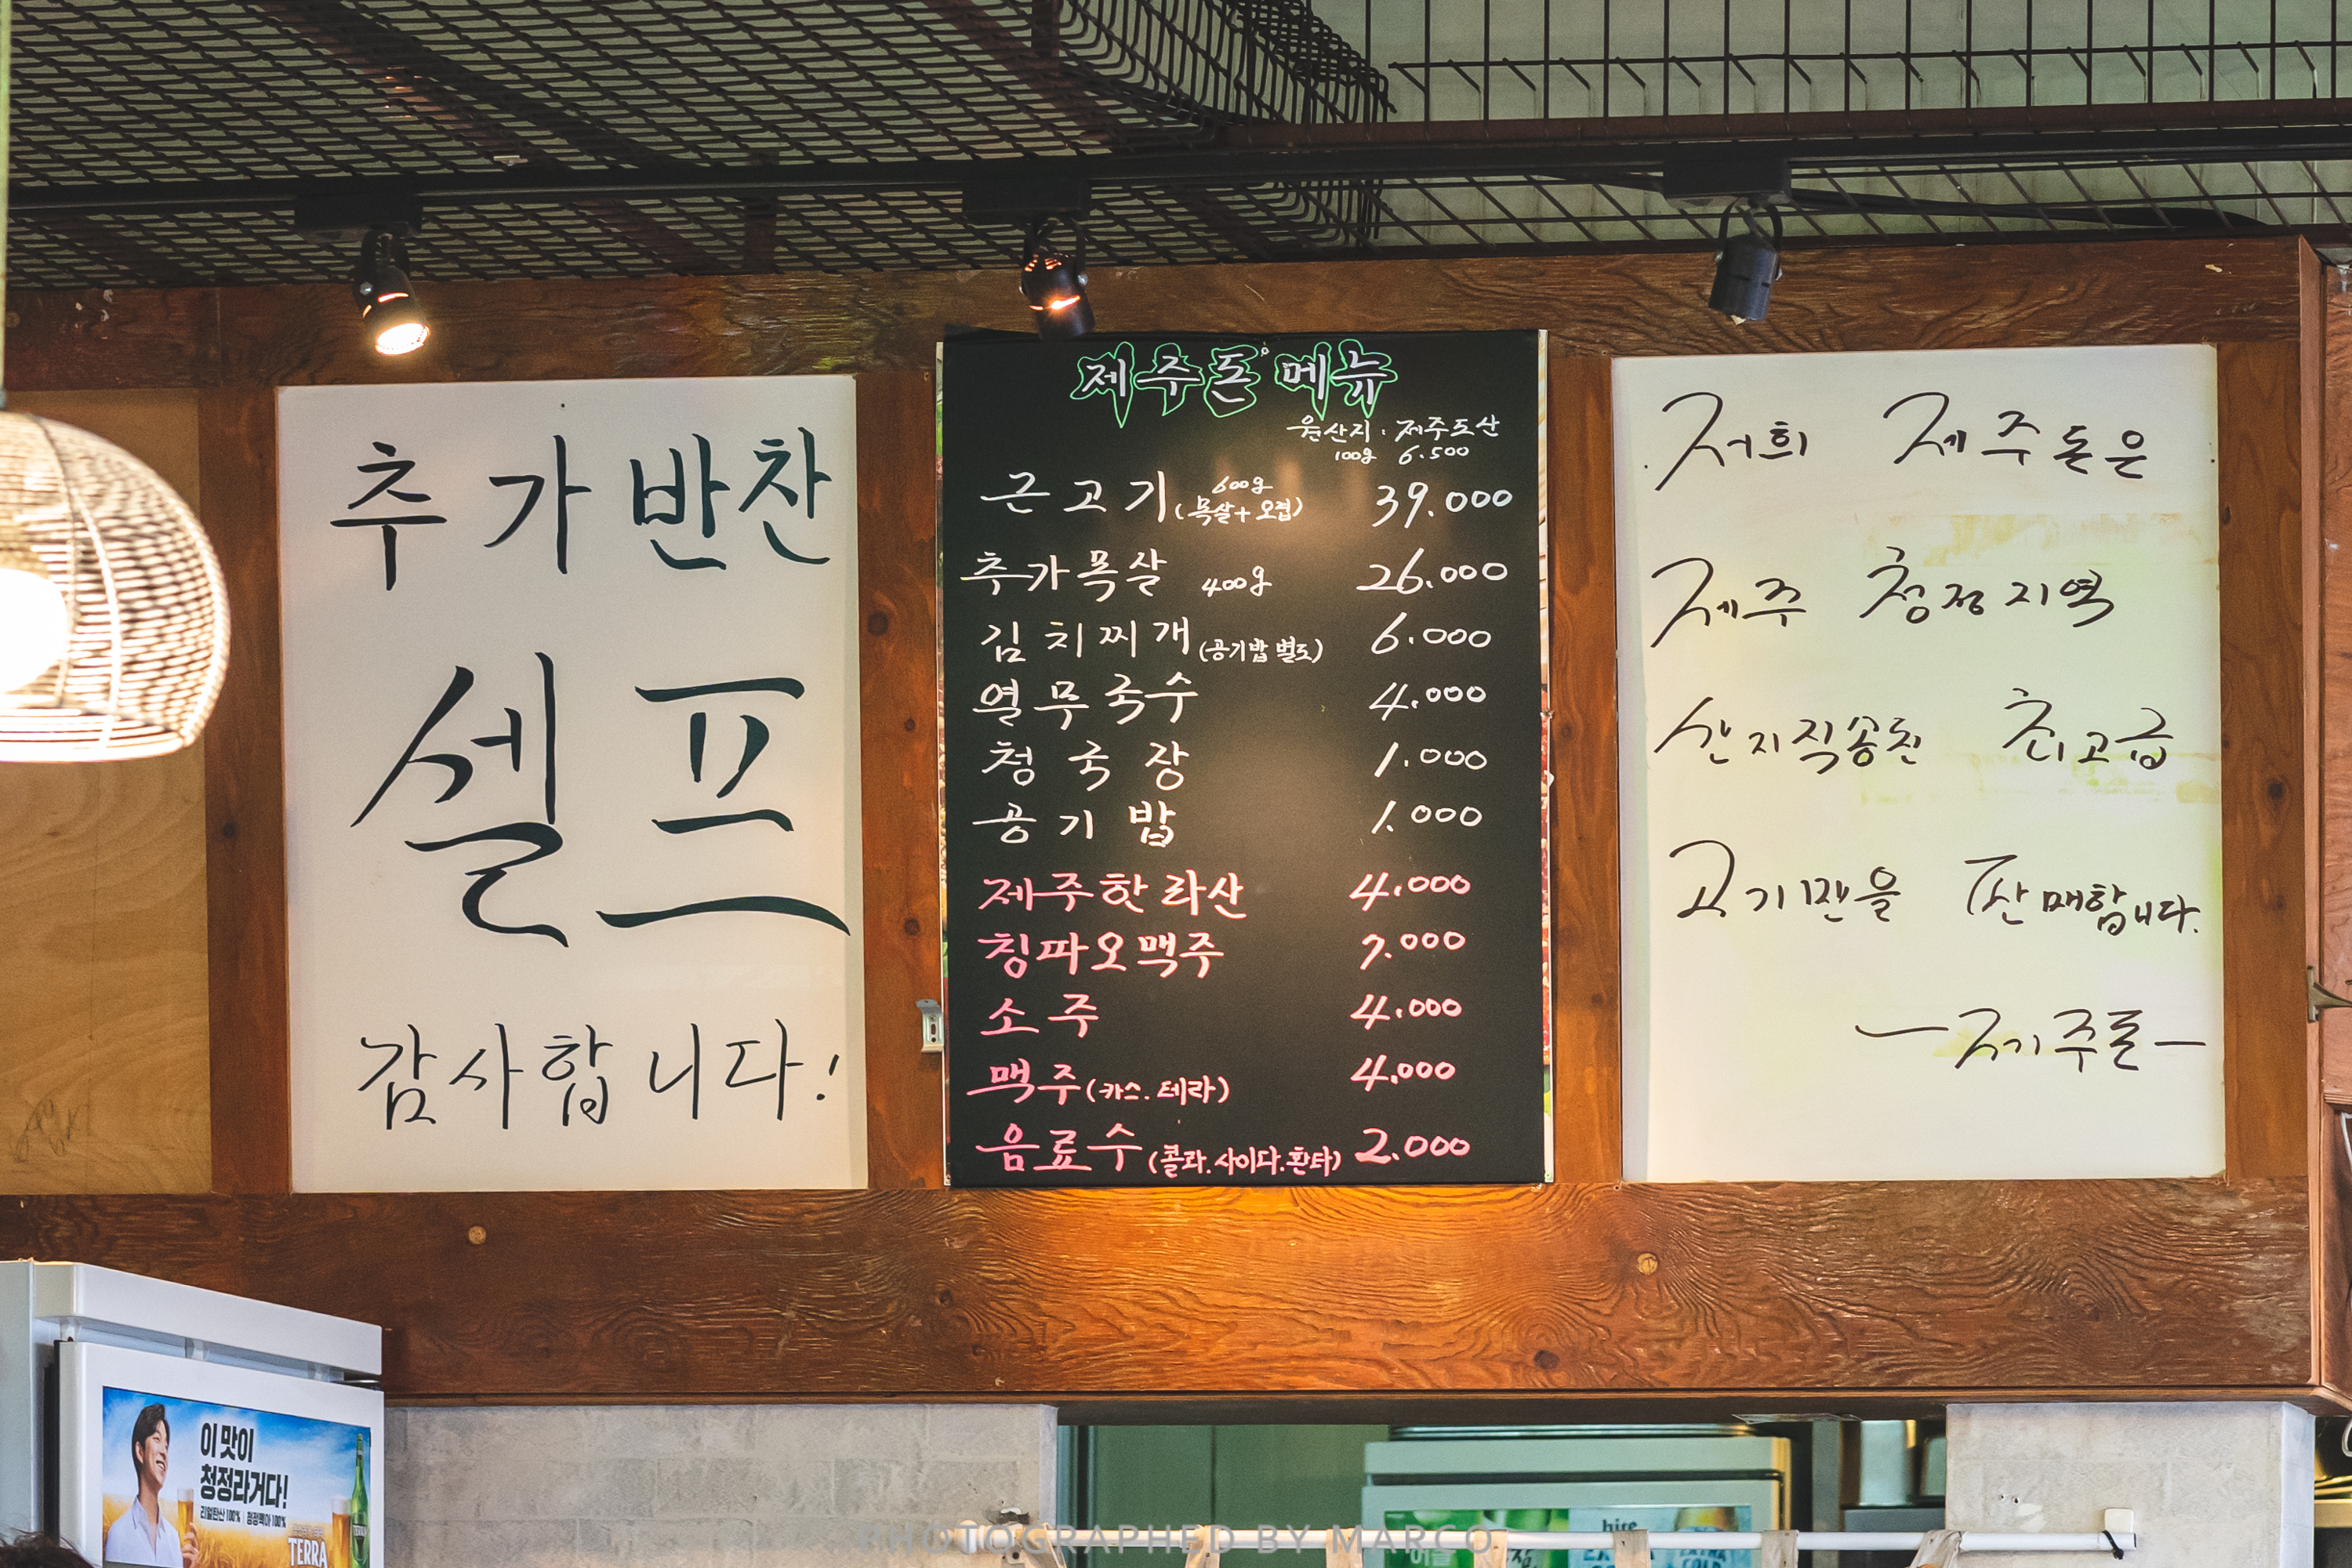 추가반찬
셀프
감사합니다!
제주돈 메뉴
원산지 : 제주도산
100g 6.500
근고기 600g (목살+오겹) 39.000
추가목살 400g 26.000
김치찌개 (공기밥 별도) 6.000
열무국수 4.000
청국장 1.000
공기밥 1.000
제주한라산 4.000
칭따오맥주 7.000
소주 4.000
맥주 (카스. 테라) 4.000
음료수 (콜라. 사이다. 환타) 2.000
저희 제주돈은
제주 청정지역
산지직송된 최고급
고기만을 판매합니다.
-제주돈-
이 맛이
청정라거다!
리얼탄산 100% | 청정맥아 100%
TERRA
PHOTOGRAPHED BY MARCO